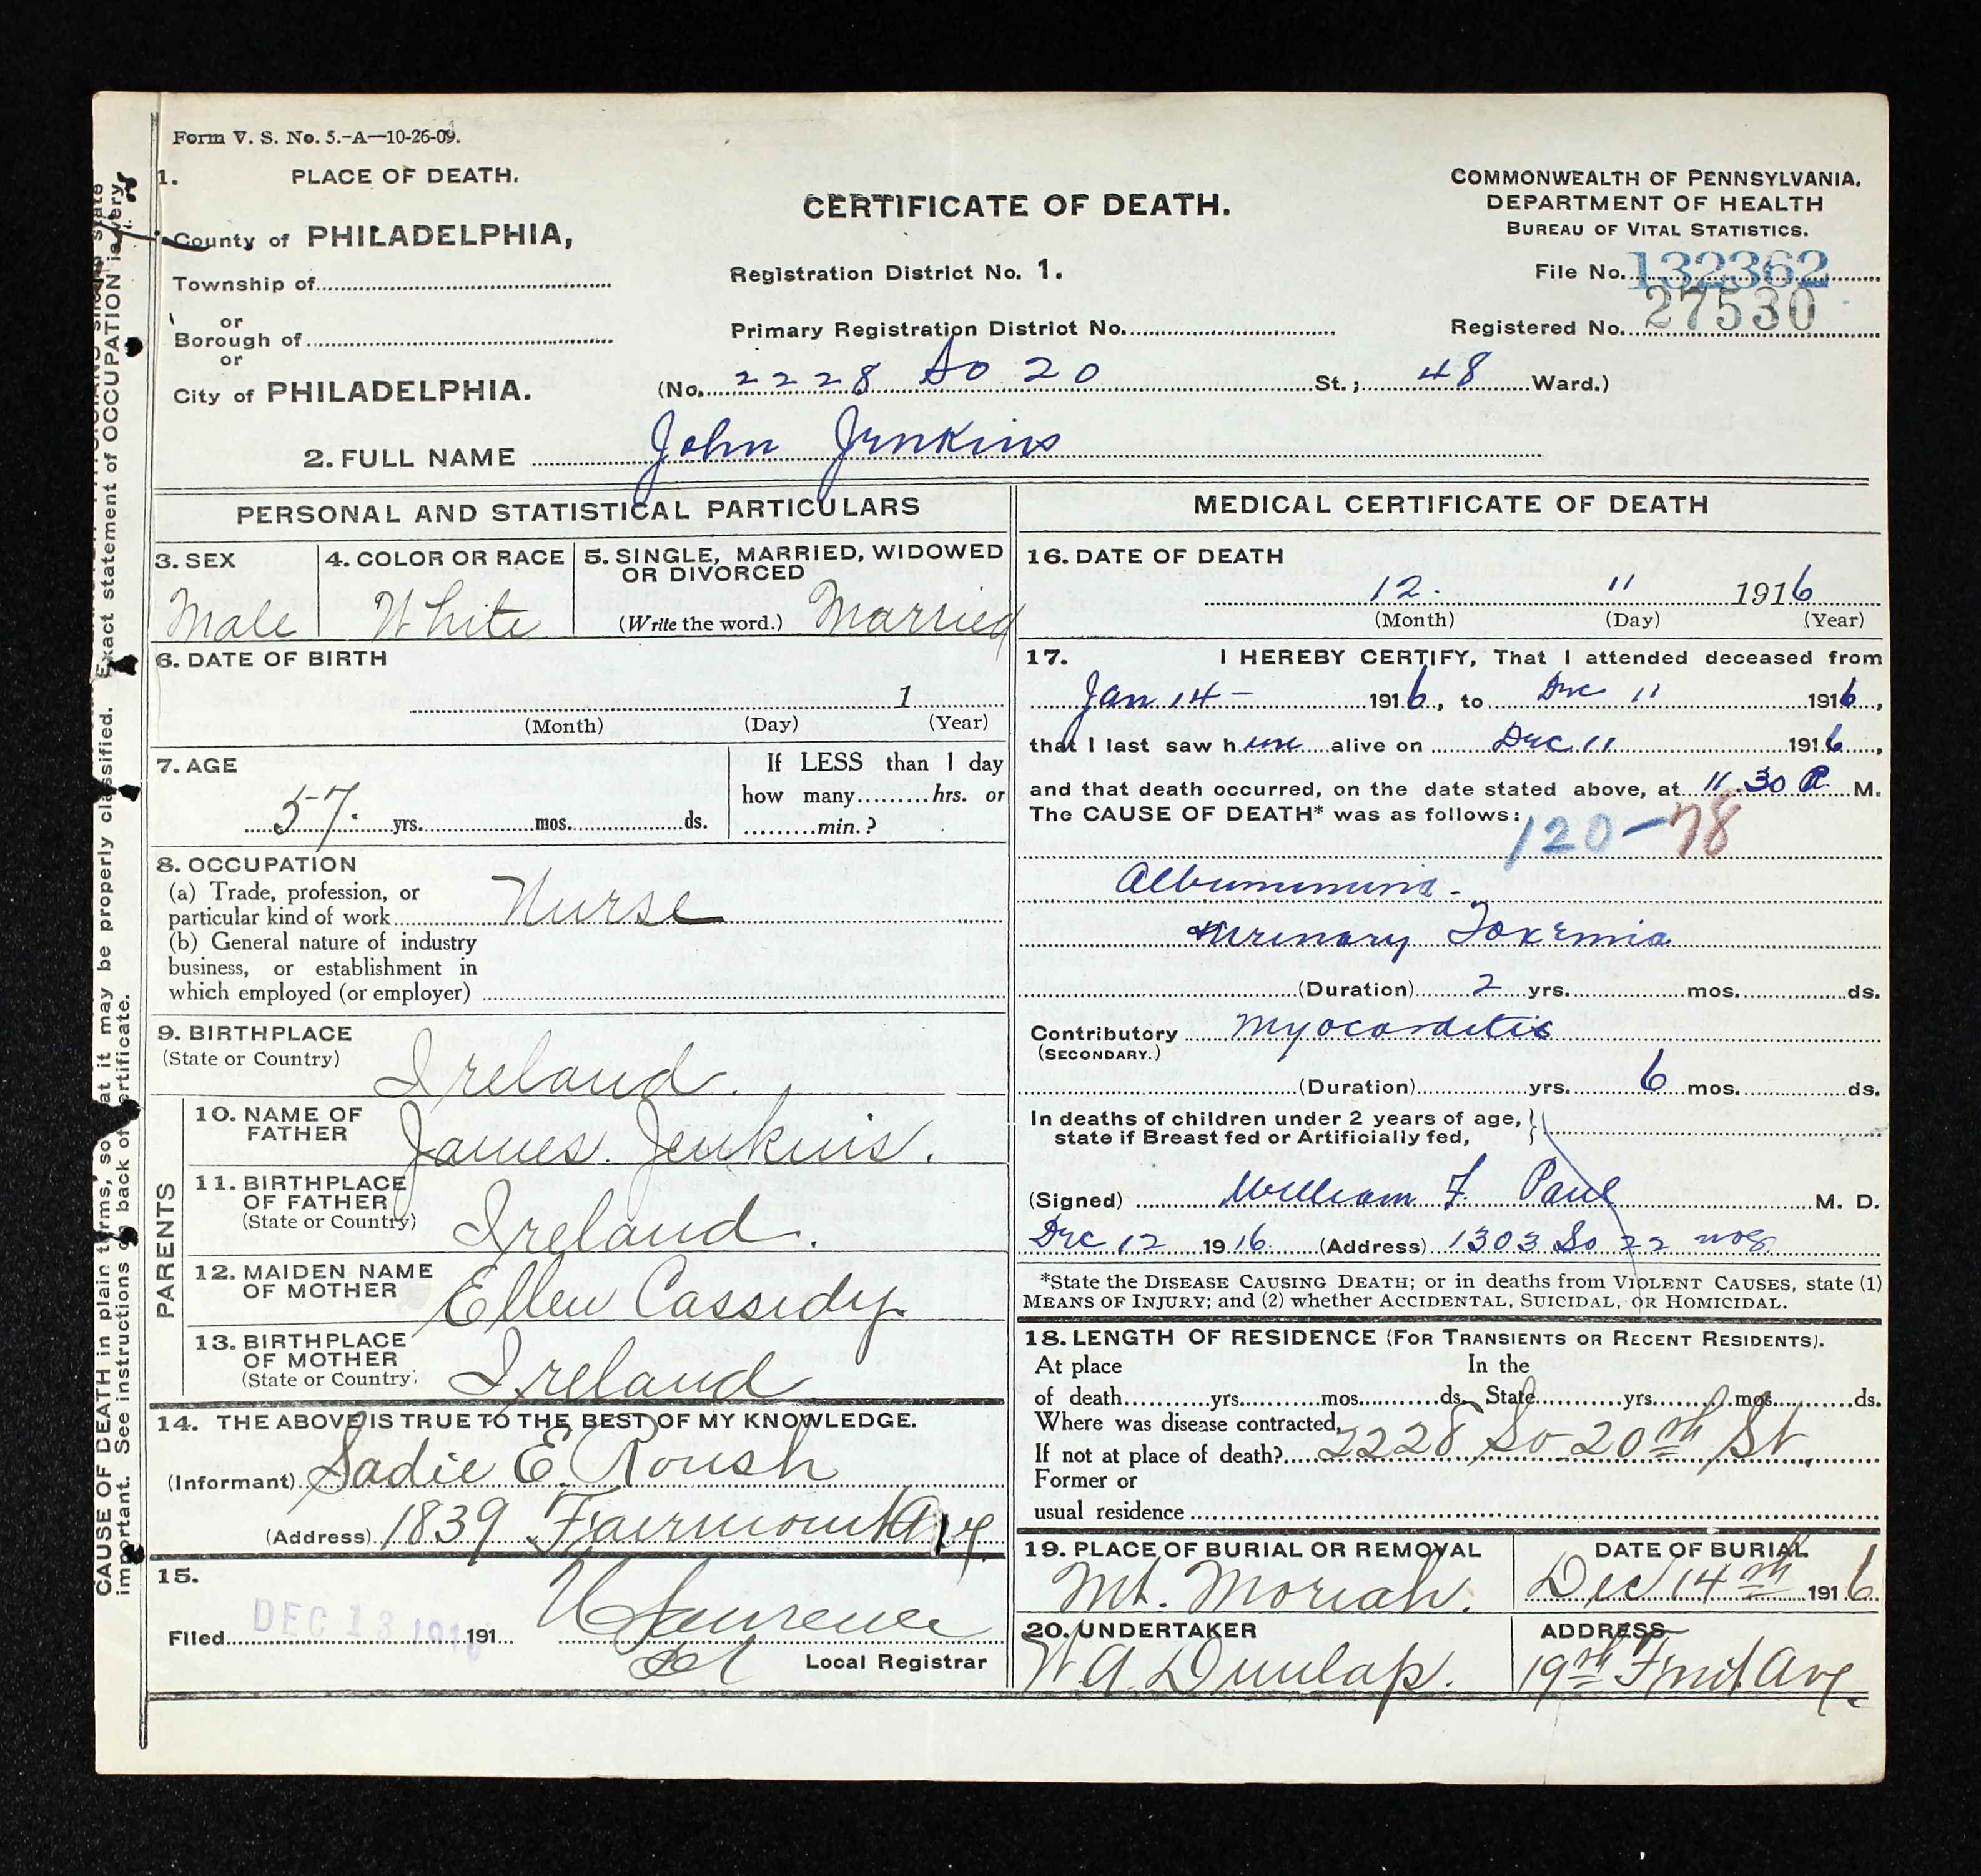 Form V. S. No. 5.-A—10-26-09.
1. PLACE OF DEATH.
County of PHILADELPHIA,
Township of
or
Borough of
or
City of PHILADELPHIA.
CERTIFICATE OF DEATH.
Registration District No. 1.
Primary Registration District No.
(No. 2228 So 20 St.; 48 Ward.)
COMMONWEALTH OF PENNSYLVANIA.
DEPARTMENT OF HEALTH
BUREAU OF VITAL STATISTICS.
File No. 132362
Registered No. 27530
2. FULL NAME John Jenkins
PERSONAL AND STATISTICAL PARTICULARS
3. SEX
Male
4. COLOR OR RACE
White
5. SINGLE, MARRIED, WIDOWED
OR DIVORCED
(Write the word.) Married
6. DATE OF BIRTH
1
(Month) (Day) (Year)
7. AGE
57 yrs. mos. ds.
If LESS than 1 day
how many hrs. or
min.?
8. OCCUPATION
(a) Trade, profession, or
particular kind of work Nurse
(b) General nature of industry
business, or establishment in
which employed (or employer)
9. BIRTHPLACE
(State or Country)
Ireland.
PARENTS
10. NAME OF
FATHER
James Jenkins.
11. BIRTHPLACE
OF FATHER
(State or Country)
Ireland.
12. MAIDEN NAME
OF MOTHER
Ellen Cassidy.
13. BIRTHPLACE
OF MOTHER
(State or Country)
Ireland
14. THE ABOVE IS TRUE TO THE BEST OF MY KNOWLEDGE.
(Informant) Sadie E. Roush
(Address) 1839 Fairmount Ave
15.
Filed DEC 13 1916 191
Local Registrar
MEDICAL CERTIFICATE OF DEATH
16. DATE OF DEATH
12. 11 1916
(Month) (Day) (Year)
17. I HEREBY CERTIFY, That I attended deceased from
Jan 14 - 1916, to Dec 11 1916,
that I last saw him alive on Dec 11 1916,
and that death occurred, on the date stated above, at 11.30 P. M.
The CAUSE OF DEATH* was as follows:
120-78
Albuminuria -
Urinary Toxemia
(Duration) 2 yrs. mos. ds.
Contributory Myocarditis
(SECONDARY.)
(Duration) yrs. 6 mos. ds.
In deaths of children under 2 years of age,
state if Breast fed or Artificially fed,
(Signed) William F. Paul M. D.
Dec 12 1916 (Address) 1303 So 22
*State the DISEASE CAUSING DEATH; or in deaths from VIOLENT CAUSES, state (1)
MEANS OF INJURY; and (2) whether ACCIDENTAL, SUICIDAL, OR HOMICIDAL.
18. LENGTH OF RESIDENCE (FOR TRANSIENTS OR RECENT RESIDENTS).
At place In the
of death yrs. mos. ds. State yrs. mos. ds.
Where was disease contracted,
If not at place of death? 2228 So 20th St
Former or
usual residence
19. PLACE OF BURIAL OR REMOVAL
Mt. Moriah.
DATE OF BURIAL
Dec 14th 1916
20. UNDERTAKER
W A Dunlap.
ADDRESS
19th Fmt Ave.
CAUSE OF DEATH in plain terms, so that it may be properly classified. Exact statement of OCCUPATION is very
important. See instructions on back of certificate.